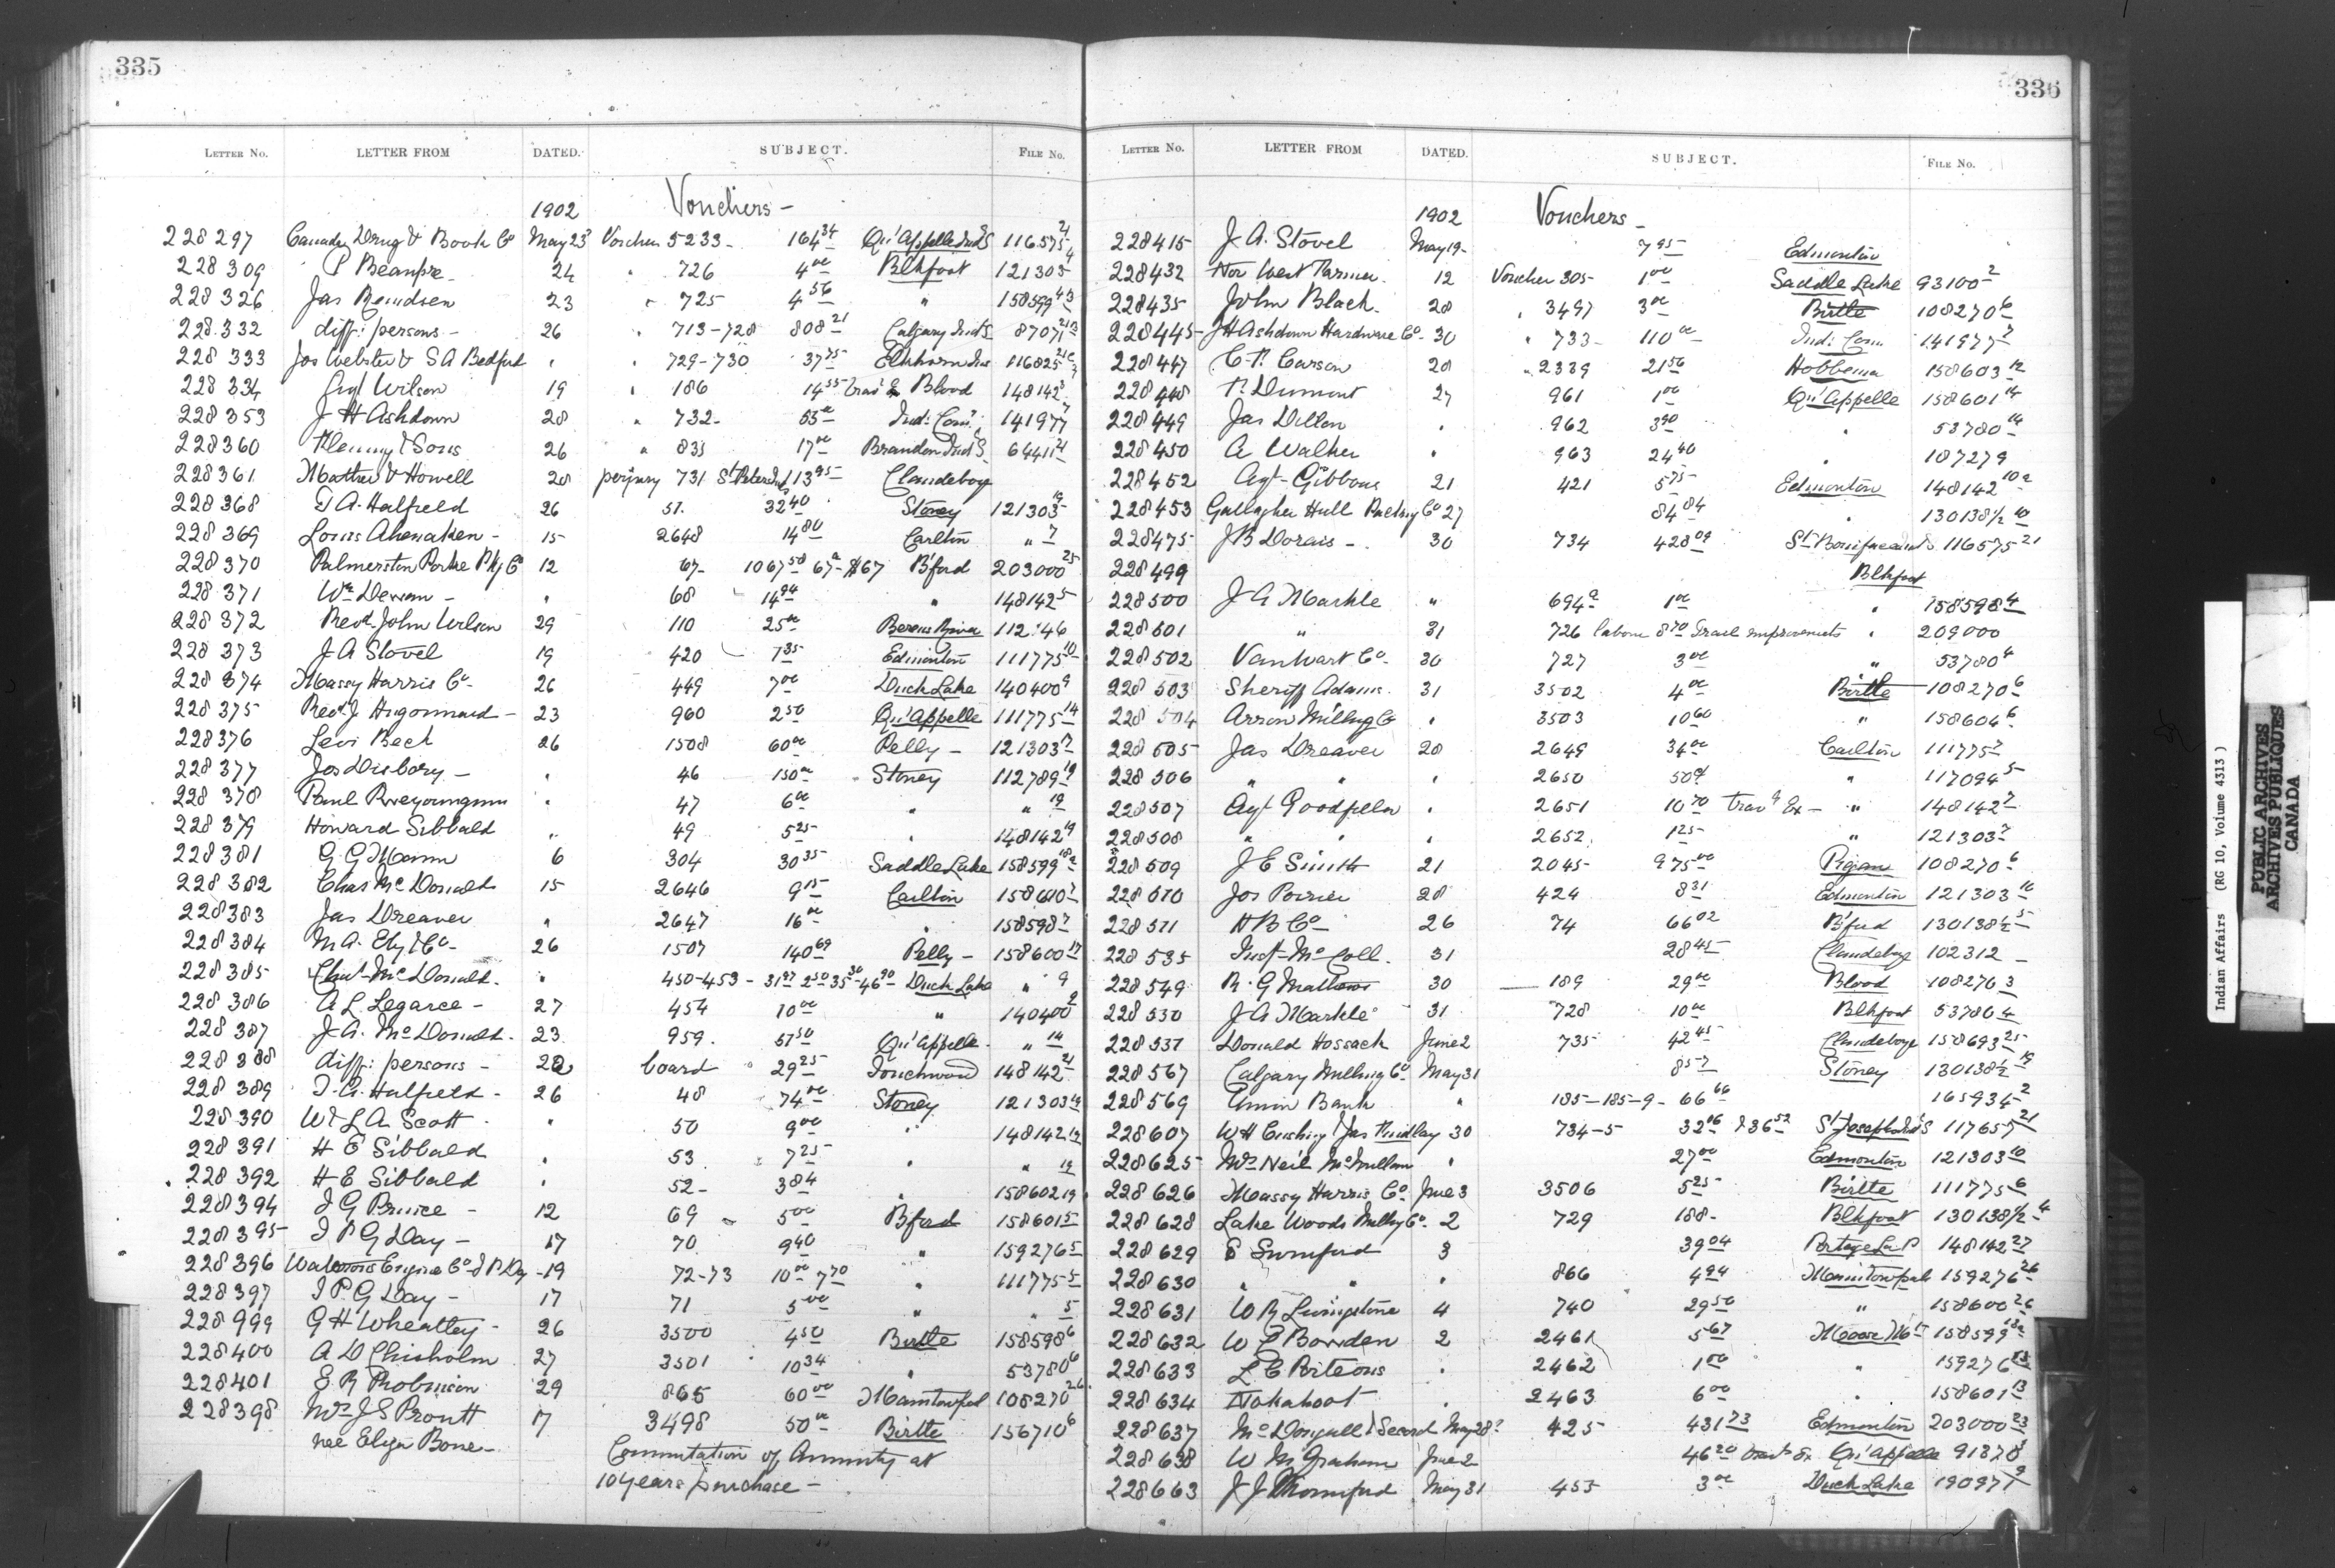 335
LETTER No. LETTER FROM DATED. SUBJECT. FILE No.
1902 Vouchers -
228297 Canada Drug & Book Co May 23 Voucher 5233 - 164 34 Qu'Appelle Ind S 116575 21
228309 P Beaupre - 24 " 726 4 00 Blkfoot 121303 4
228326 Jas 23 " 725 4 56 " 158599 4
228332 diff: persons - 26 " 713-728 808 21 Calgary Ind S 87071
228333 Jos Webster & S A Bedford " " 729-730 37 75 Elkhorn Ind 116825
228334 Agt Wilson 19 " 186 14 55 Trav Ex Blood 148142 3
228353 J H Ashdown 28 " 732 - 55 00 Ind: Com: 141977 7
228360 & Sons 26 " 833 17 00 Brandon Ind S 64411
228361 Mather & Howell 28 perjury 731 St Peters 113 95 Clandeboye
228368 T A. Halfield 26 51. 32 40 Stoney 121303 19
228369 Louis Ahenaken - 15 2648 14 80 Carlton " 7
228370 Palmerston Porke Pkg Co 12 67 - 1067 58 67 a $67 B'ford 203000 25
228371 Wm Dewan - " 68 14 94 " 148142 5
228372 Revd. John Wilson 29 110 25 00 Berens River 112 46
228373 J A Stovel 19 420 7 35 Edmonton 111775 10
228374 Massy Harris Co - 26 449 7 00 Duck Lake 140400 9
228375 Revd. J Hugonnard - 23 960 2 50 Qu'Appelle 111775 14
228376 Levi Beck 26 1508 60 00 Pelly - 121303 17
228377 Jos - " 46 150 00 Stoney 112789 19
228378 Paul " 47 6 00 " " 19
228379 Howard Sibbald " 49 5 25 " 148142 19
228381 G G Mann 6 304 30 35 Saddle Lake 158599 18a
228382 Chas McDonald 15 2646 9 15 Carlton 158600 7
228383 Jas Dreaver " 2647 16 00 " 158598 7
228384 M A. Eby & Co - 26 1507 140 69 Pelly - 158600 17
228385 Chas McDonald - " 450-453 - 31 97 2 50 35 30 46 90 Duck Lake " 9
228386 A L Legaree - 27 454 10 00 " 140400 9
228387 J A. McDonald - 23 959. 57 50 Qu'Appelle - " 14
228388 diff: persons - 22 board 29 25 Touchwood 148142 21
228389 T. A. Halfield - 26 48 74 00 Stoney 121303 19
228390 W & L A. Scott " 50 9 00 " 148142 19
228391 H E Sibbald " 53 7 25 " " 19
228392 H E Sibbald " 52 - 3 84 " 158602 19
228394 J G Prince - 12 69 5 00 B'ford 158601 5
228395 J P G Day - 17 70 9 40 " 159276 5
228396 Waterous Engine Co & P Day - 19 72-73 10 00 7 70 " 111775 5
228397 J P G Day - 17 71 5 00 " " 5
228999 G H Wheatley - 26 3500 4 50 Birtle 158598 6
228400 A D Chisholm 27 3501 10 34 " 53780 6
228401 E R Robinson 29 865 60 00 Manitowpah 108270 26
228398 Mrs J S Proutt 17 3498 50 00 Birtle 156710 6
nee Eliza Bone - Commutation of Annuity at
10 years purchase -
336
LETTER No. LETTER FROM DATED. SUBJECT. FILE No.
1902 Vouchers -
228415 J A. Stovel May 19 - 7 95 Edmonton
228432 Nor West Farmer 12 Voucher 305 - 1 00 Saddle Lake 93100 2
228435 John Black - 28 " 3497 3 00 Birtle 108270 6
228445 - J H Ashdown Hardware Co - 30 " 733 - 110 00 Ind: Com. 141977 7
228447 C. P. Carson 28 " 2339 21 56 Hobbema 158603 12
228448 P. Dumont 27 961 1 00 Qu'Appelle 158601 14
228449 Jas Dillon " 962 3 90 " 53780 14
228450 A Walker " 963 24 40 " 187279
228452 Agt - Gibbons 21 421 5 75 Edmonton 148142 10a
228453 Gallagher Hull Packing Co 27 84 84 " 130138 1/2 10
228475 J B Dorais - 30 734 428 09 St Boniface Ind S 116575 21
228499 Blkfoot
228500 J A Markle " 694 a 1 00 " 158598 4
228501 " 31 726 labour 8 70 Trail improvements " 209000
228502 VanWart Co - 30 727 3 00 " 53780 4
228503 Sheriff Adams 31 3502 4 00 Birtle 108270 6
228504 Arrow Milling Co " 3503 10 60 " 158604 6
228505 Jas Dreaver 28 2649 34 00 Carlton 111775 7
228506 " " " 2650 50¢ " 117094 5
228507 Agt Goodfellow " 2651 10 70 Travg Ex - " 148142 7
228508 " " " 2652 1 25 " 121303 7
228509 J E Smith 21 2045 975 00 Piegan 108270 6
228510 Jos Poirier 28 424 8 31 Edmonton 121303 10
228511 H B Co - 26 74 66 02 B'ford 130138 1/2 5
228535 Inst - McColl - 31 28 45 Clandeboye 102312 -
228549 R. G Mathews 30 189 29 00 Blood 108270 3
228530 J A Markle 31 728 10 00 Blkfoot 53780 4
228537 Donald Hossack June 2 735 42 45 Clandeboye 158693 25
228567 Calgary Milling Co May 31 8 57 Stoney 130138 1/2 19
228569 Union Bank " 185-185-9 - 66 66 165934 2
228607 W H Cushing & Jas Findlay 30 734-5 32 16 & 36 52 St Josephs Ind S 117657 21
228625 Mrs Neil McMillan " 27 00 Edmonton 121303 10
228626 Massy Harris Co June 3 3506 5 25 Birtle 111775 6
228628 Lake Woods Milling Co - 2 729 188 - Blkfoot 130138 1/2 4
228629 E Swinford 3 39 04 Portage La P 148142 27
228630 " " " 866 4 94 Manitowpah 159276 26
228631 W R Livingstone 4 740 29 50 " 158600 26
228632 W E Bowden 2 2461 5 67 Moose Mt 158599 13a
228633 L C Porteous " 2462 1 00 " 159276 13
228634 Nahahoot " 2463 6 00 " 158601 13
228637 McDougall & Secord May 28 425 431 73 Edmonton 203000 23
228638 W M Graham June 2 46 20 travg Ex Qu'Appelle 91878
228663 J J May 31 455 3 00 Duck Lake 190977 9
Indian Affairs (RG 10, Volume 4313)
PUBLIC ARCHIVES
ARCHIVES PUBLIQUES
CANADA